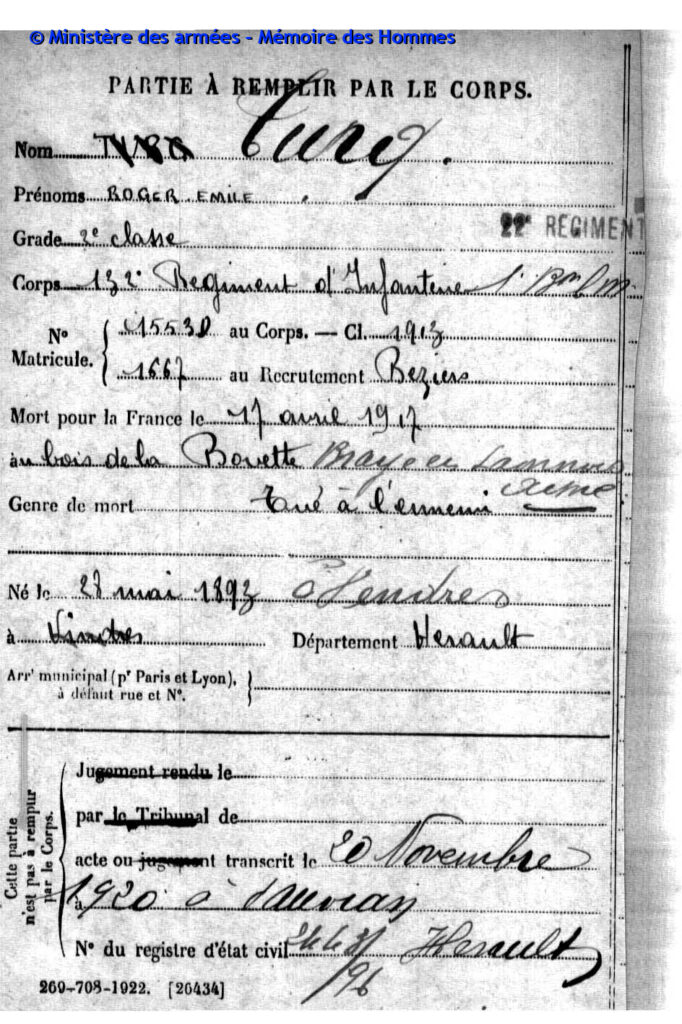 © Ministère des armées - Mémoire des Hommes
PARTIE À REMPLIR PAR LE CORPS.
Nom Turq.
Prénoms ROGER EMILE
Grade 2e classe
22e RÉGIMENT
Corps 132e Régiment d'Infanterie
No Matricule. 15530 au Corps. — Cl. 1913
1667 au Recrutement Beziers
Mort pour la France le 17 avril 1917
au bois de la Bovette Braye en Laonnois
Aisne
Genre de mort Tué à l'ennemi
Né le 28 mai 1893 à Vendres
à Vindres Département Herault
Arrt municipal (pr Paris et Lyon),
à défaut rue et No.
Cette partie
n'est pas à rempur
par le Corps.
Jugement rendu le
par le Tribunal de
acte ou jugement transcrit le 20 Novembre
à 1920 à Sauvian
No du registre d'état civil Herault
269-708-1922. [26434]